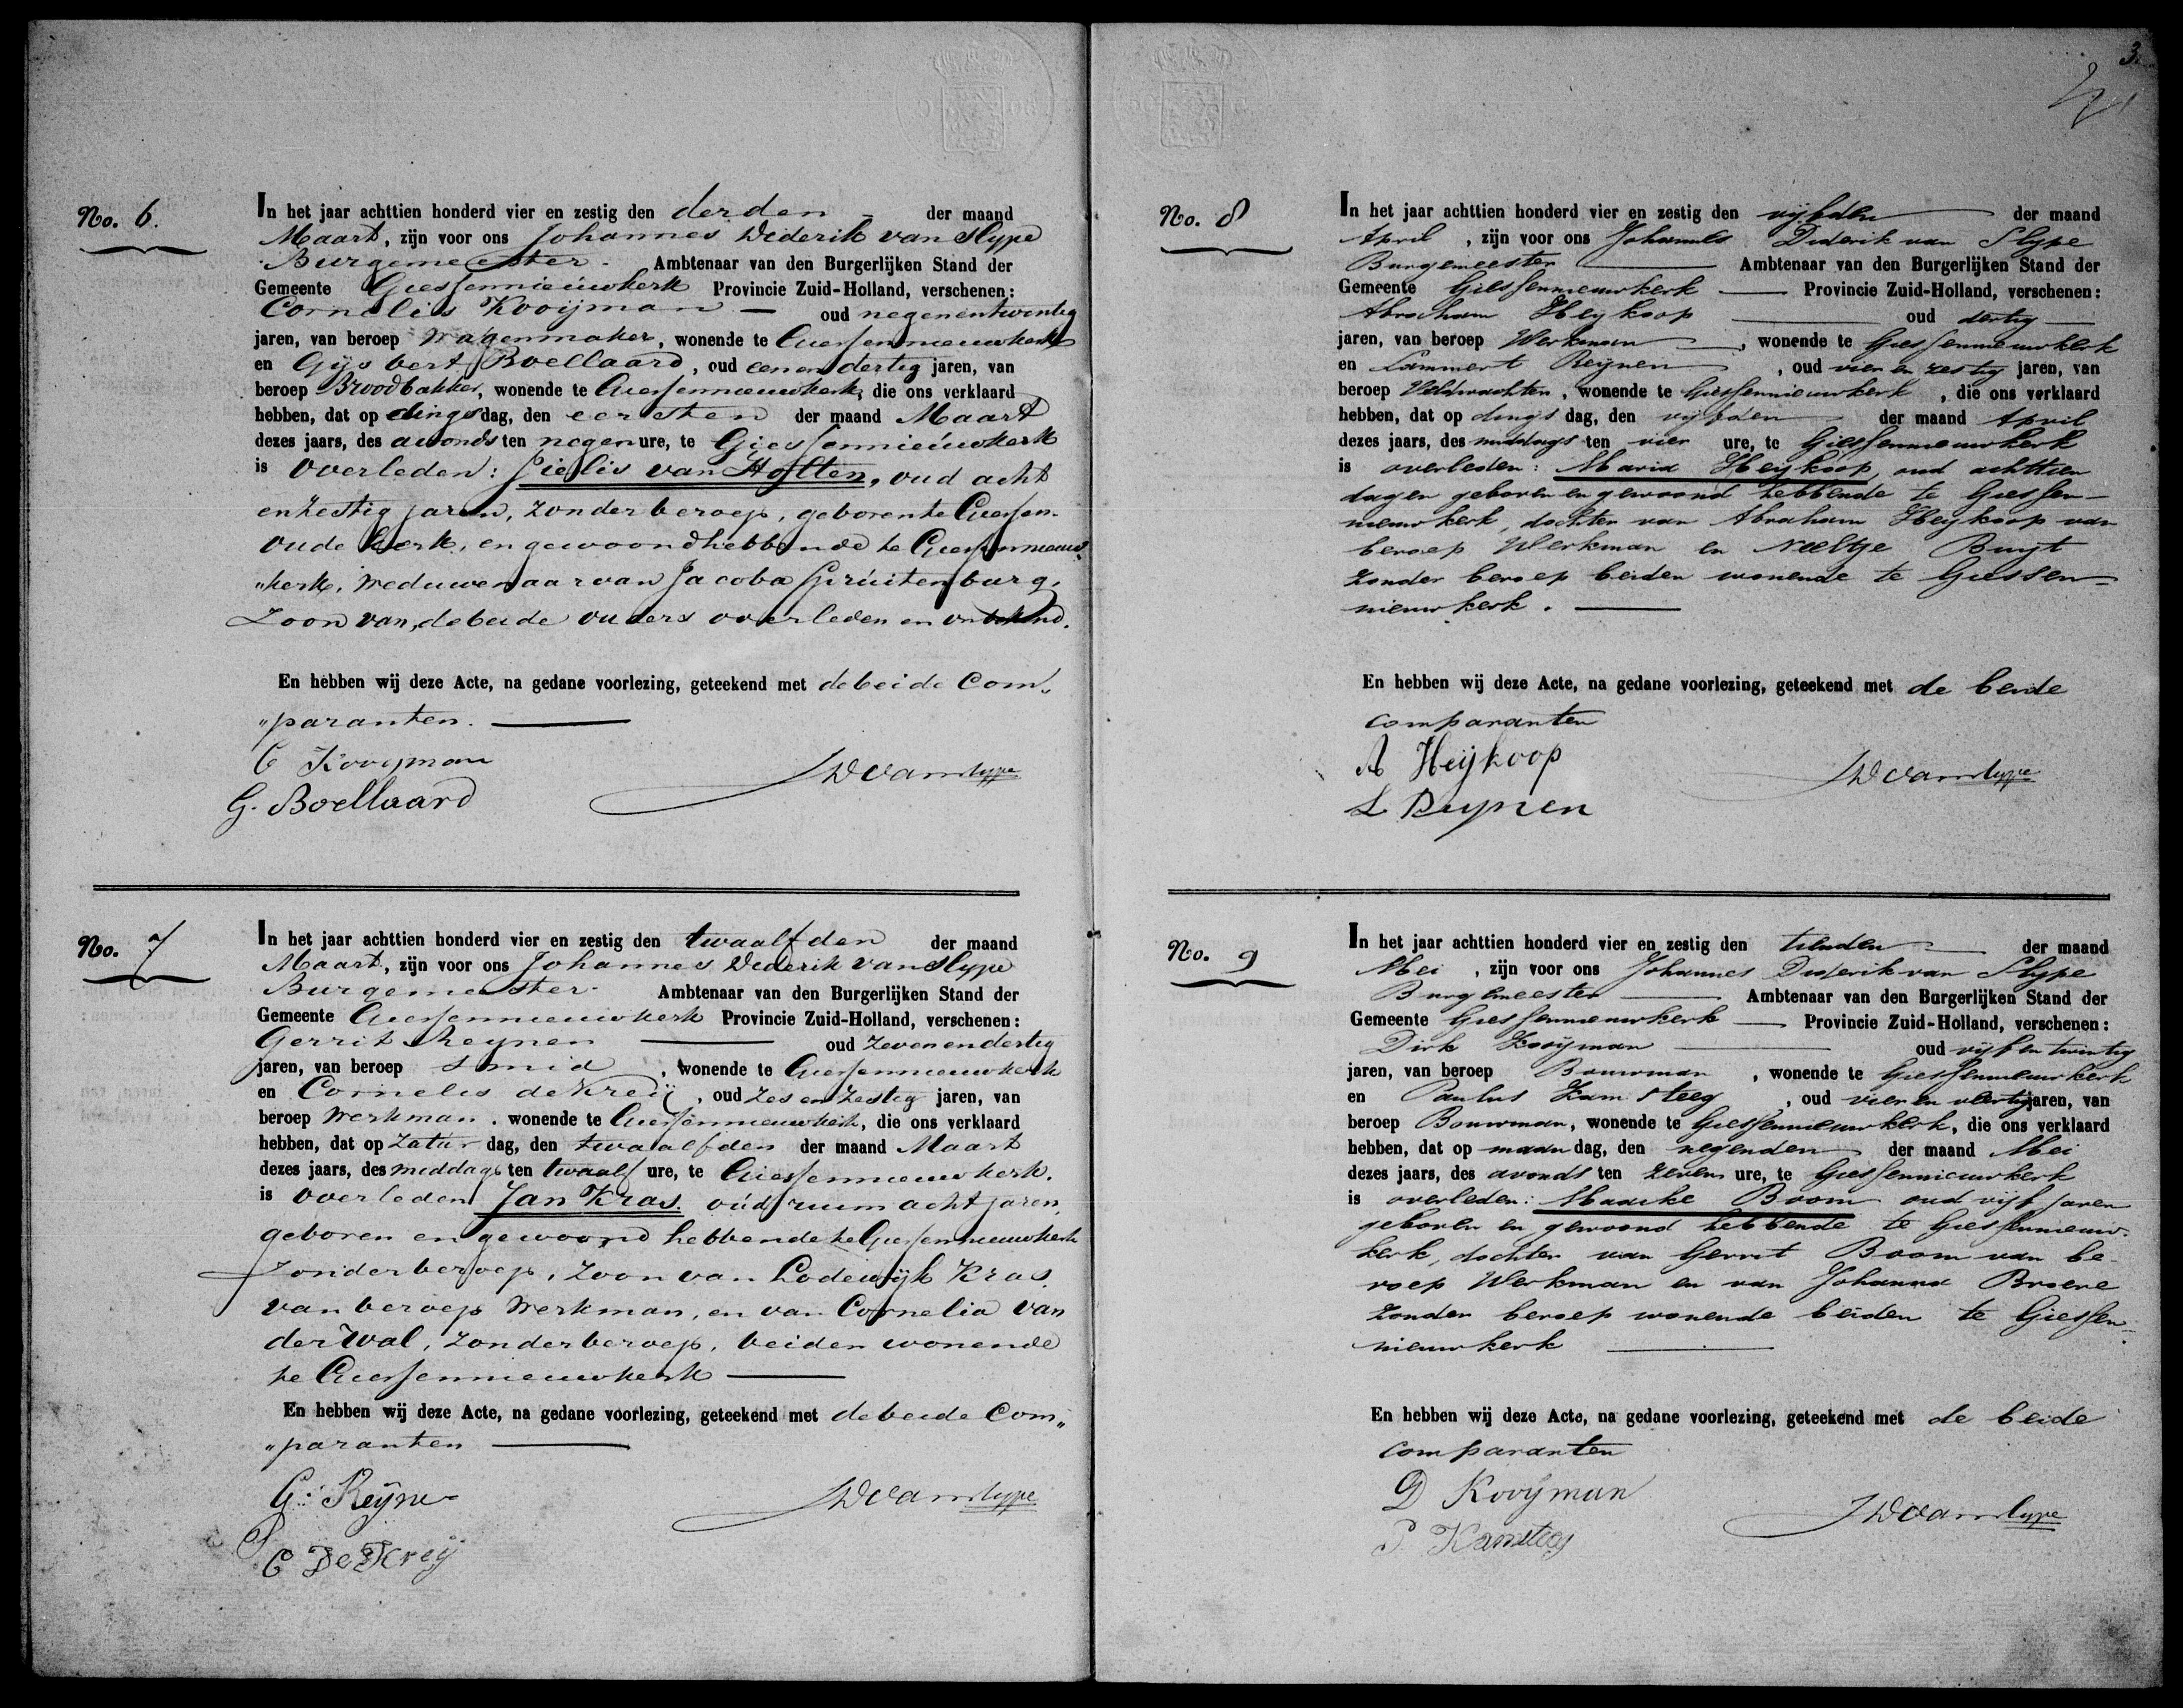 No. 6.
In het jaar achttien honderd vier en zestig den derden der maand
Maart, zijn voor ons Johannes Diderik van Slype
Burgemeester Ambtenaar van den Burgerlijken Stand der
Gemeente Giessennieuwkerk Provincie Zuid-Holland, verschenen:
Cornelis Kooijman — oud negenentwintig
jaren, van beroep Wagenmaker, wonende te Giessennieuwkerk
en Gijsbert Boellaard, oud eenendertig jaren, van
beroep Broodbakker, wonende te Giessennieuwkerk, die ons verklaard
hebben, dat op dingsdag, den eersten der maand Maart
dezes jaars, des avonds ten negen ure, te Giessennieuwkerk
is overleden: Pielis van Houten, oud acht
enzestig jaren, zonder beroep, geboren te Giessen-
oudekerk, en gewoond hebbende te Giessennieuw„
„kerk, weduwenaar van Jacoba Spruitenburg,
Zoon van, de beide ouders overleden en onbekend.
En hebben wij deze Acte, na gedane voorlezing, geteekend met de beide Com„
„paranten. —
C Kooijman
JDvanSlype
G. Boellaard
No. 7
In het jaar achttien honderd vier en zestig den twaalfden der maand
Maart, zijn voor ons Johannes Diderik van Slype
Burgemeester Ambtenaar van den Burgerlijken Stand der
Gemeente Giessennieuwkerk Provincie Zuid-Holland, verschenen:
Gerrit Reynen — oud zevenendertig
jaren, van beroep Smid, wonende te Giessennieuwkerk
en Cornelis de Kreij, oud zes en zestig jaren, van
beroep Werkman, wonende te Giessennieuwkerk, die ons verklaard
hebben, dat op Zatur dag, den twaalfden der maand Maart
dezes jaars, des middags ten twaalf ure, te Giessennieuwkerk.
is overleden Jan Kras. oud ruim acht jaren,
geboren en gewoond hebbende te Giessennieuwkerk
zonder beroep, zoon van Lodewijk Kras.
van beroep Werkman, en van Cornelia van
der Wal, zonder beroep, beiden wonende
te Giessennieuwkerk —
En hebben wij deze Acte, na gedane voorlezing, geteekend met de beide Com„
„paranten —
G: Reijne
JDvanSlype
C De Kreij
3
No. 8
In het jaar achttien honderd vier en zestig den vijfden — der maand
April, zijn voor ons Johannes Diderik van Slype
Burgemeester — Ambtenaar van den Burgerlijken Stand der
Gemeente Giessennieuwkerk — Provincie Zuid-Holland, verschenen:
Abraham Heykoop — oud dertig —
jaren, van beroep Werkman —, wonende te Giessennieuwkerk
en Lammert Reynen, oud vier en zestig jaren, van
beroep Veldwachter, wonende te Giessennieuwkerk, die ons verklaard
hebben, dat op dings dag, den vijfden der maand April
dezes jaars, des middags ten vier ure, te Giessennieuwkerk
is overleden: Maria Heykoop, oud achttien
dagen geboren en gewoond hebbende te Giessen—
nieuwkerk, dochter van Abraham Heykoop van
beroep Werkman en Neeltje Buyt
zonder beroep beiden wonende te Giessen=
nieuwkerk. —
En hebben wij deze Acte, na gedane voorlezing, geteekend met de beide
comparanten
A Heijkoop
JDvanSlype
L Reynen
No. 9
In het jaar achttien honderd vier en zestig den tienden — der maand
Mei, zijn voor ons Johannes Diderik van Slype
Burgemeester — Ambtenaar van den Burgerlijken Stand der
Gemeente Giessennieuwkerk — Provincie Zuid-Holland, verschenen:
Dirk Kooijman — oud vijf en twintig
jaren, van beroep Bouwman, wonende te Giessennieuwkerk
en Paulus Kamsteeg, oud vier en veertig jaren, van
beroep Bouwman, wonende te Giessennieuwkerk, die ons verklaard
hebben, dat op maan dag, den negenden der maand Mei
dezes jaars, des avonds ten zeven ure, te Giessennieuwkerk
is overleden: Maaike Boom oud vijf jaren
geboren en gewoond hebbende te Giessennieuw-
kerk, dochter van Gerrit Boom van be-
roep Werkman en van Johanna Broere
zonder beroep wonende beiden te Giessen-
nieuwkerk —
En hebben wij deze Acte, na gedane voorlezing, geteekend met de beide
comparanten
D Kooijman
JDvanSlype
P. Kamsteeg